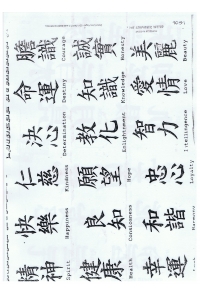 膽識 Courage
誠實 Honesty
美麗 Beauty
命運 Destiny
知識 Knowledge
愛情 Love
決心 Determination
教化 Enlightenment
智力 Intelligence
仁慈 Kindness
願望 Hope
忠心 Loyalty
快樂 Happiness
良知 Consciousness
和諧 Harmony
精神 Spirit
健康 Health
幸運